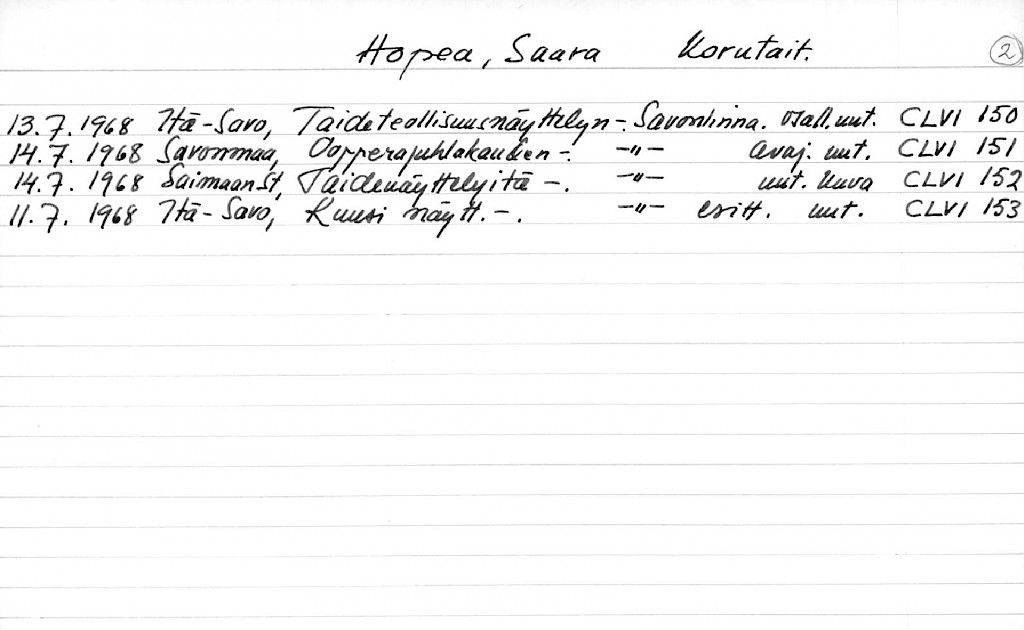 Hopea, Saara Korutait. 2
13.7.1968 Itä-Savo, Taideteollisuusnäyttelyn -. Savonlinna. osall. uut. CLVI 150
14.7.1968 Savonmaa, Oopperajuhlakauden -. -"- avaj. uut. CLVI 151
14.7.1968 Saimaan St, Taidenäyttelyitä -. -"- uut. kuva CLVI 152
11.7.1968 Itä-Savo, Kuusi näytt. -. -"- esitt. uut. CLVI 153